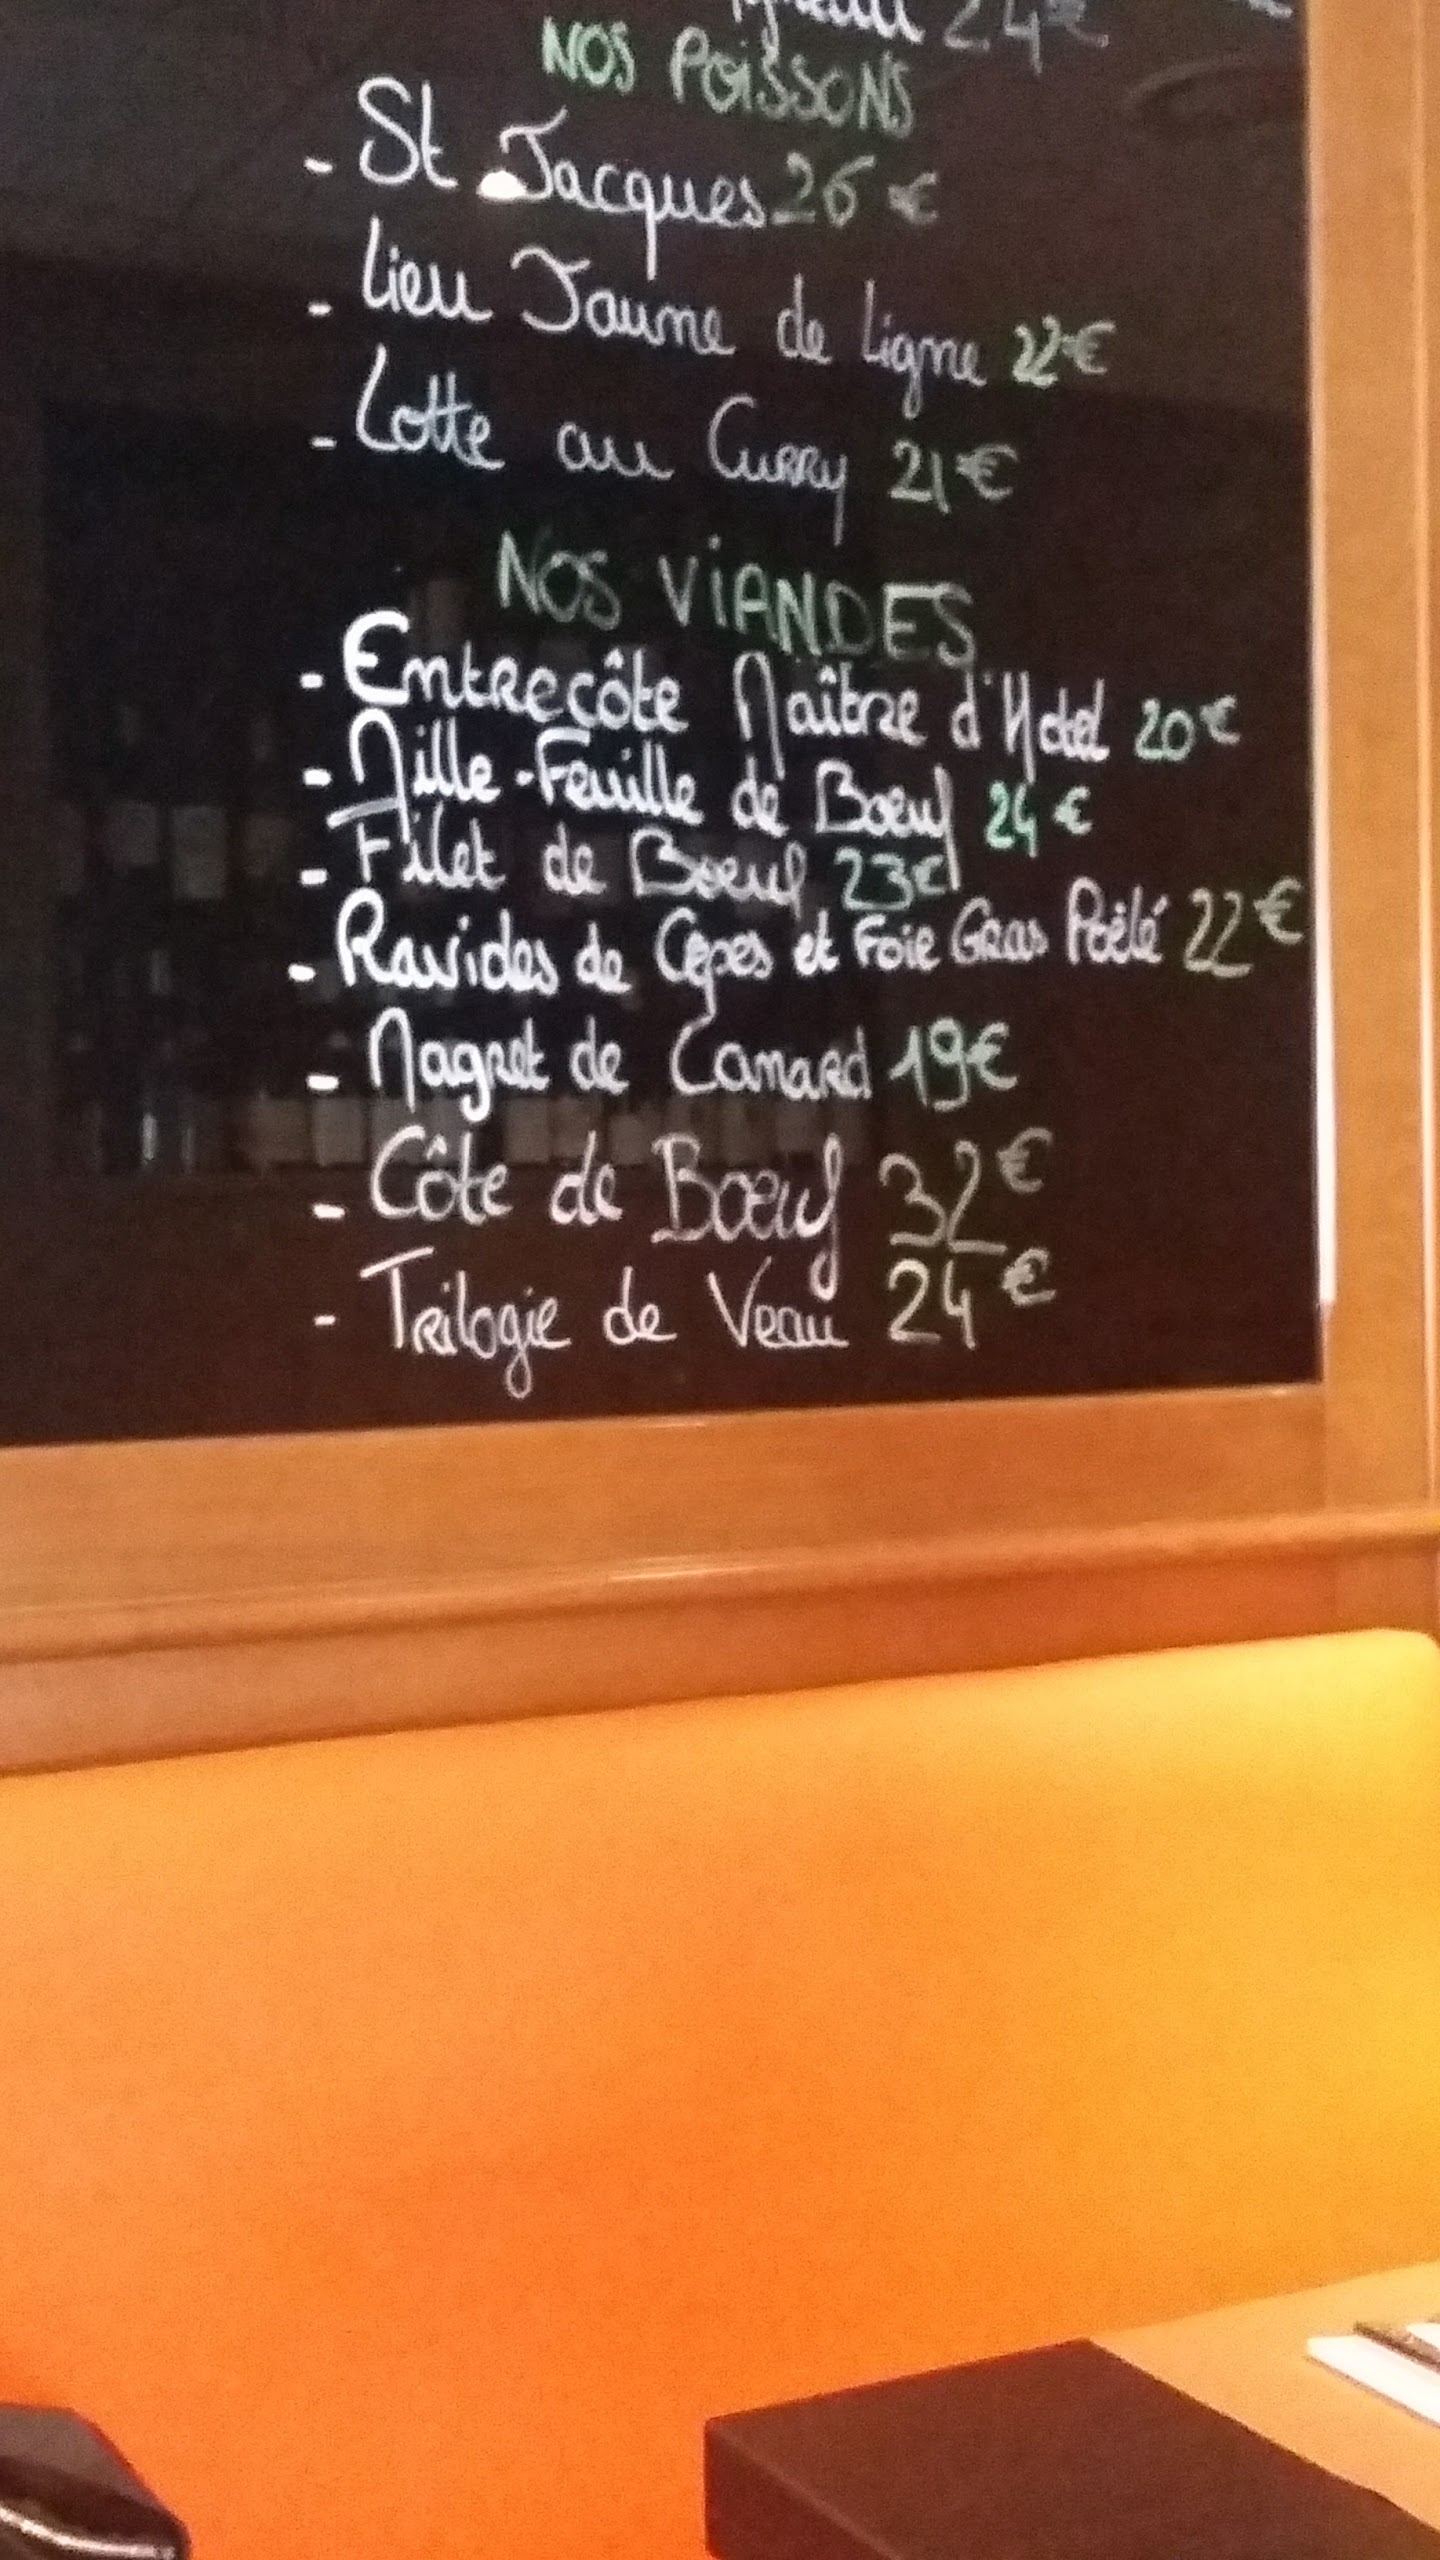 24€
NOS POISSONS
- St Jacques 26€
- Lieu Jaune de Ligne 22€
- Lotte au Curry 21€
NOS VIANDES
- Entrecôte Maître d'Hotel 20€
- Mille-Feuille de Boeuf 24€
- Filet de Boeuf 23€
- Ravioles de Cèpes et Foie Gras Poêlé 22€
- Magret de Canard 19€
- Côte de Boeuf 32€
- Trilogie de Veau 24€